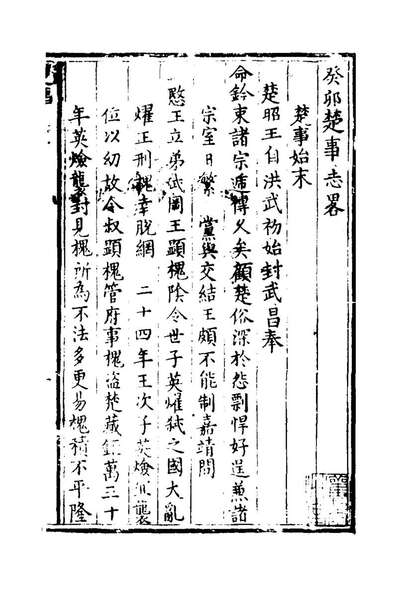 癸卯楚事志畧
楚事始末
楚昭王自洪武初始封武昌奉
命鈐束諸宗遞傳久矣顧楚俗深於怨剽悍好逞兼諸
宗室日繁 黨與交結王頗不能制嘉靖間
愍王立弟武岡王顯槐陰令世子英燿弒之國大亂
燿正刑槐幸脫網 二十四年王次子英㷿宜襲
位以幼故令叔顯槐管府事槐盜楚藏鉅萬三十
年英㷿襲封見槐所為不法多更易槐積不平隆